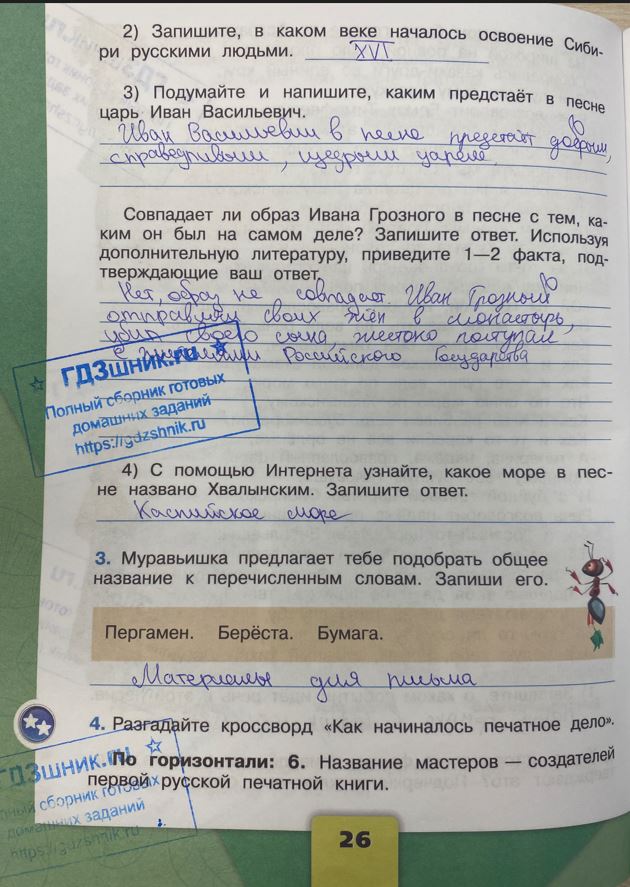 2) Запишите, в каком веке началось освоение Сиби-
ри русскими людьми. XVI
3) Подумайте и напишите, каким предстаёт в песне
царь Иван Васильевич.
Иван Васильевич в песне предстаёт добрым,
справедливым, щедрым царём.
Совпадает ли образ Ивана Грозного в песне с тем, ка-
ким он был на самом деле? Запишите ответ. Используя
дополнительную литературу, приведите 1—2 факта, под-
тверждающие ваш ответ.
Нет, образ не совпадает. Иван Грозный
отправлял своих жён в монастырь,
убил своего сына, жестоко поступал
с жителями Российского Государства
ГДЗшник.ru
Полный сборник готовых
домашних заданий
https://gdzshnik.ru
4) С помощью Интернета узнайте, какое море в пес-
не названо Хвалынским. Запишите ответ.
Каспийское море
3. Муравьишка предлагает тебе подобрать общее
название к перечисленным словам. Запиши его.
Пергамен. Берёста. Бумага.
Материалы для письма
4. Разгадайте кроссворд «Как начиналось печатное дело».
По горизонтали: 6. Название мастеров — создателей
первой русской печатной книги.
ГДЗшник.ru
сборник готовых
домашних заданий
https://gdzshnik.ru
26